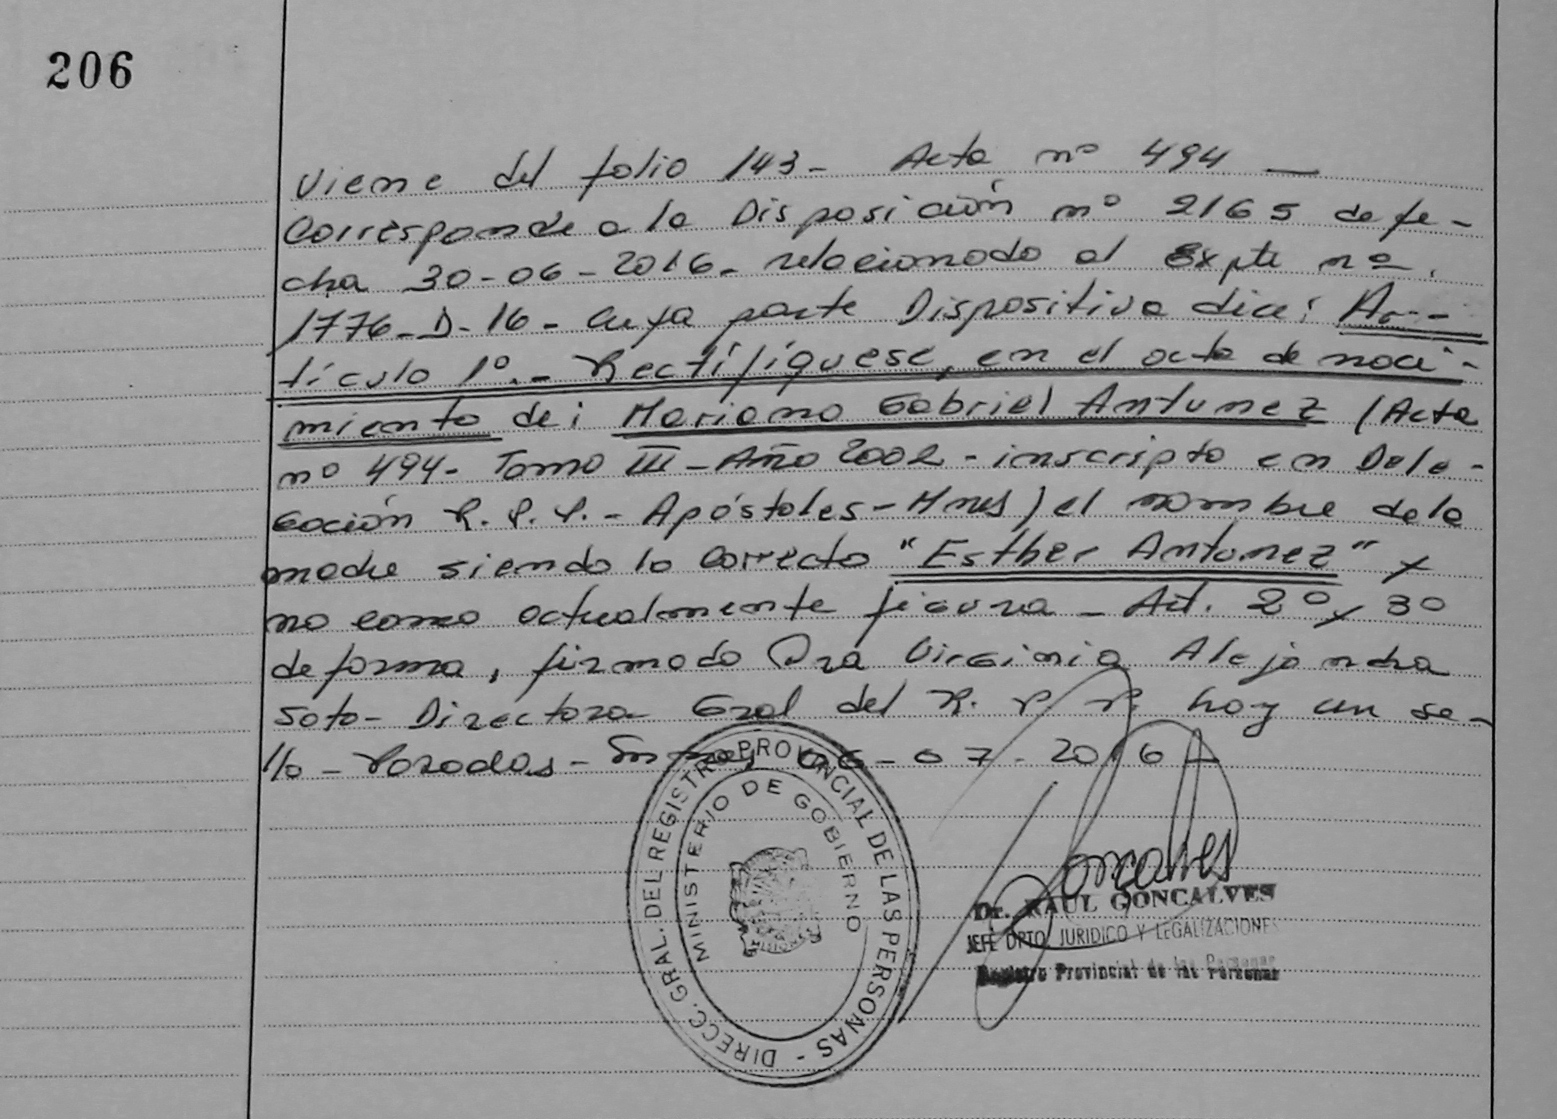 206
Viene del folio 143- Acta nº 494 —
Corresponde a la Disposición nº 2165 de fe-
cha 30-06-2016- relacionado al Expte nº.
1776-D-16- Cuya parte Dispositiva dice: Ar-
tículo 1º.- Rectifíquese, en el acta de naci-
miento de: Mariano Gabriel Antunez (Acta
nº 494- Tomo III - Año 2002 - inscripto en Dele-
gación R.P.P.- Apóstoles-Mnes) el nombre de la
madre siendo lo correcto "Esther Antunez" y
no como actualmente figura - Art. 2º y 3º
de forma, firmado Dra Virginia Alejandra
Soto- Directora Gral del R.P.P. hay un se-
llo - Posadas - Mnes 06-07-2016
DIRECC. GRAL. DEL REGISTRO PROVINCIAL DE LAS PERSONAS -
MINISTERIO DE GOBIERNO
Goncalves
Dr. RAUL GONCALVES
JEFE DPTO. JURIDICO Y LEGALIZACIONES
Registro Provincial de las Personas